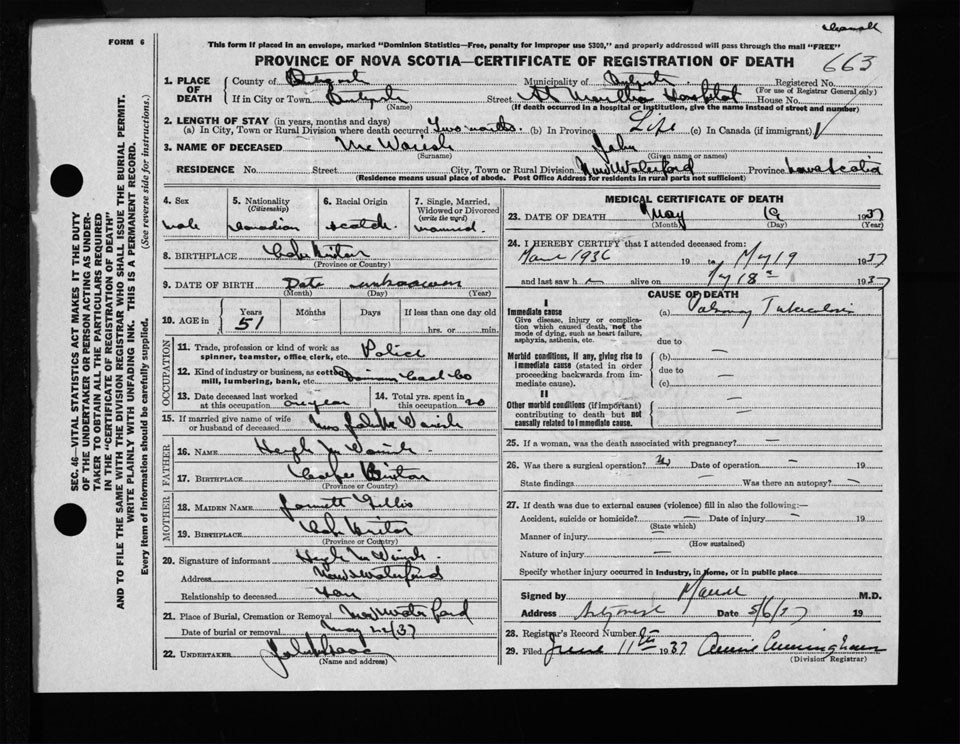 FORM 6
This form if placed in an envelope, marked "Dominion Statistics—Free, penalty for improper use $300," and properly addressed will pass through the mail "FREE"
PROVINCE OF NOVA SCOTIA—CERTIFICATE OF REGISTRATION OF DEATH
663
SEC. 46—VITAL STATISTICS ACT MAKES IT THE DUTY
OF THE UNDERTAKER OR PERSON ACTING AS UNDER-
TAKER TO OBTAIN ALL THE PARTICULARS REQUIRED
IN THE "CERTIFICATE OF REGISTRATION OF DEATH"
AND TO FILE THE SAME WITH THE DIVISION REGISTRAR WHO SHALL ISSUE THE BURIAL PERMIT.
WRITE PLAINLY WITH UNFADING INK. THIS IS A PERMANENT RECORD.
Every item of information should be carefully supplied. (See reverse side for instructions.)
1. PLACE OF DEATH
County of Municipality of Registered No.
(For use of Registrar General only)
If in City or Town Street St Martha Hospital House No.
(Name) (If death occurred in a hospital or institution, give the name instead of street and number)
2. LENGTH OF STAY (in years, months and days)
(a) In City, Town or Rural Division where death occurred Two months. (b) In Province Life (c) In Canada (if immigrant)
3. NAME OF DECEASED John
(Surname) (Given name or names)
RESIDENCE No. Street City, Town or Rural Division New Waterford Province Nova Scotia
(Residence means usual place of abode. Post Office Address for residents in rural parts not sufficient)
4. Sex
male
5. Nationality
(Citizenship)
Canadian
6. Racial Origin
Scotch
7. Single, Married, Widowed or Divorced
(write the word)
married
8. BIRTHPLACE Cape Breton
(Province or Country)
9. DATE OF BIRTH Date unknown
(Month) (Day) (Year)
10. AGE in
Years Months Days If less than one day
51 hrs. or min.
OCCUPATION
11. Trade, profession or kind of work as
spinner, teamster, office clerk, etc. Police
12. Kind of industry or business, as cotton
mill, lumbering, bank, etc. Dominion Coal Co
13. Date deceased last worked
at this occupation one year
14. Total yrs. spent in
this occupation 20
15. If married give name of wife
or husband of deceased Mrs John
FATHER
16. NAME Hugh
17. BIRTHPLACE Cape Breton
(Province or Country)
MOTHER
18. MAIDEN NAME Gillis
19. BIRTHPLACE Breton
(Province or Country)
20. Signature of informant Hugh
Address New Waterford
Relationship to deceased
21. Place of Burial, Cremation or Removal New Waterford
Date of burial or removal May 22/37
22. UNDERTAKER
(Name and address)
MEDICAL CERTIFICATE OF DEATH
23. DATE OF DEATH May 19 1937
(Month) (Day) (Year)
24. I HEREBY CERTIFY that I attended deceased from:
1936 19 to My 19 1937
and last saw h alive on My 18 1937
CAUSE OF DEATH
I
Immediate cause
Give disease, injury or complica-
tion which caused death, not the
mode of dying, such as heart failure,
asphyxia, asthenia, etc.
(a) Pulmonary Tuberculosis
due to
Morbid conditions, if any, giving rise to
immediate cause (stated in order
proceeding backwards from im-
mediate cause).
(b) —
due to
(c) —
II
Other morbid conditions (if important)
contributing to death but not
causally related to immediate cause.
25. If a woman, was the death associated with pregnancy? —
26. Was there a surgical operation? Date of operation — 19
State findings — Was there an autopsy? —
27. If death was due to external causes (violence) fill in also the following:—
Accident, suicide or homicide? — Date of injury — 19
(State which)
Manner of injury —
(How sustained)
Nature of injury —
Specify whether injury occurred in industry, in home, or in public place
Signed by M.D.
Address Date 5/6/37 19
28. Registrar's Record Number
29. Filed June 11th 1937 Annie Cunningham
(Division Registrar)